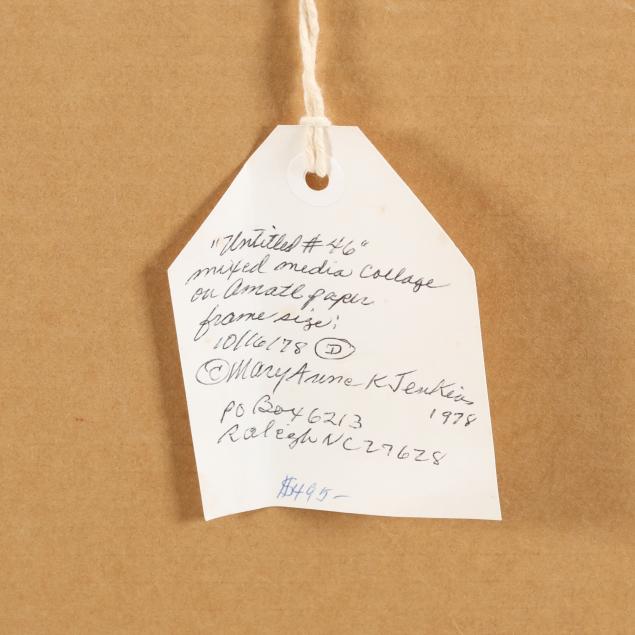 "Untitled # 46"
mixed media collage
on Amatl paper
frame size:
10/16/78 Ⓓ
© Mary Anne K Jenkins
1978
PO Box 6213
Raleigh NC 27628
$495-